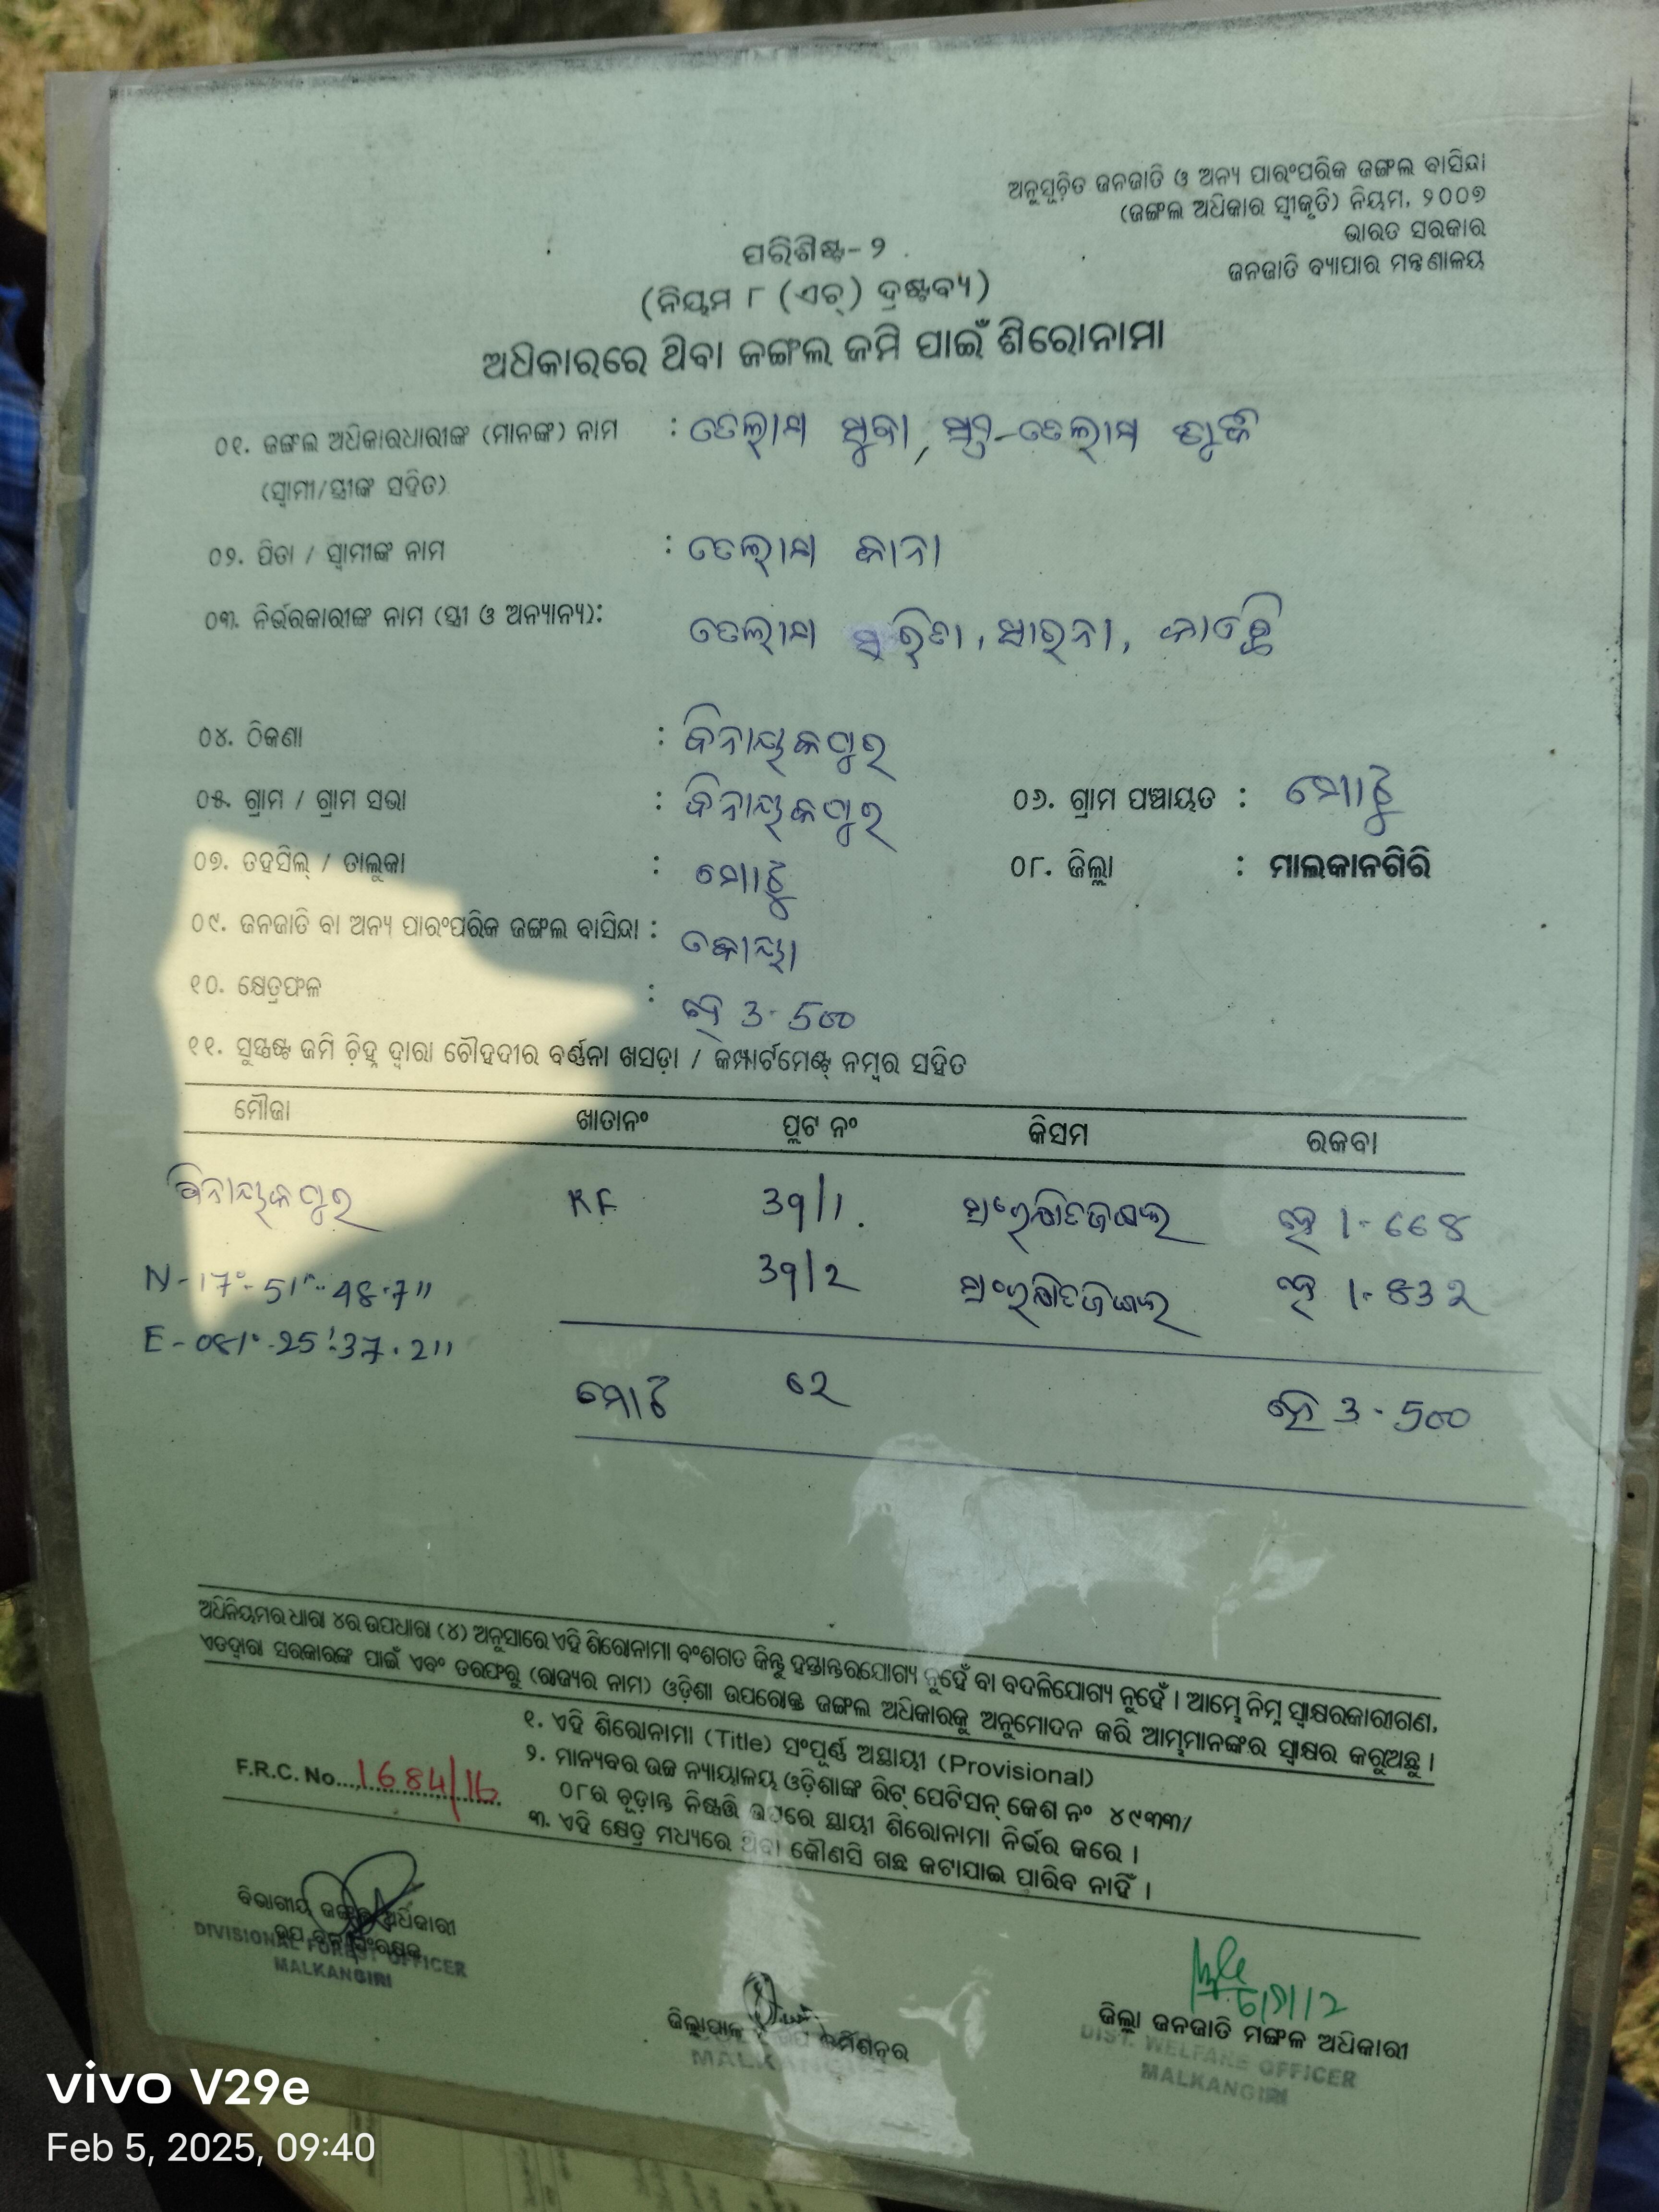 ଅନୁସୂଚିତ ଜନଜାତି ଓ ଅନ୍ୟ ପାରଂପରିକ ଜଙ୍ଗଲ ବାସିନ୍ଦା
(ଜଙ୍ଗଲ ଅଧିକାର ସ୍ୱୀକୃତି) ନିୟମ, ୨୦୦୭
ଭାରତ ସରକାର
ଜନଜାତି ବ୍ୟାପାର ମନ୍ତ୍ରଣାଳୟ
ପରିଶିଷ୍ଟ-୨
(ନିୟମ ୮ (ଏଚ୍) ଦ୍ରଷ୍ଟବ୍ୟ)
ଅଧିକାରରେ ଥିବା ଜଙ୍ଗଲ ଜମି ପାଇଁ ଶିରୋନାମା
୦୧. ଜଙ୍ଗଲ ଅଧିକାରଧାରୀଙ୍କ (ମାନଙ୍କ) ନାମ : ତେଲାମ
(ସ୍ୱାମୀ/ସ୍ତ୍ରୀଙ୍କ ସହିତ)
୦୨. ପିତା / ସ୍ୱାମୀଙ୍କ ନାମ : ତେଲାମ କାନା
୦୩. ନିର୍ଭରକାରୀଙ୍କ ନାମ (ସ୍ତ୍ରୀ ଓ ଅନ୍ୟାନ୍ୟ): ତେଲାମ
୦୪. ଠିକଣା : ବିନାୟକପୁର
୦୫. ଗ୍ରାମ / ଗ୍ରାମ ସଭା : ବିନାୟକପୁର ୦୬. ଗ୍ରାମ ପଞ୍ଚାୟତ : ମୋଟୁ
୦୭. ତହସିଲ୍ / ତାଲୁକା : ମୋଟୁ ୦୮. ଜିଲ୍ଲା : ମାଲକାନଗିରି
୦୯. ଜନଜାତି ବା ଅନ୍ୟ ପାରଂପରିକ ଜଙ୍ଗଲ ବାସିନ୍ଦା : କୋୟା
୧୦. କ୍ଷେତ୍ରଫଳ : ହେ 3-500
୧୧. ସୁସ୍ପଷ୍ଟ ଜମି ଚିହ୍ନ ଦ୍ୱାରା ଚୌହଦୀର ବର୍ଣ୍ଣନା ଖସଡ଼ା / କମ୍ପାର୍ଟମେଣ୍ଟ୍ ନମ୍ବର ସହିତ
ମୌଜା ଖାତାନଂ ପ୍ଲଟ ନଂ କିସମ ରକବା
ବିନାୟକପୁର RF 39/1 ସଂରକ୍ଷିତଜଙ୍ଗଲ ହେ 1-
39/2 ସଂରକ୍ଷିତଜଙ୍ଗଲ ହେ 1-
N-17°-51'-48.7"
E-081°-25'-37.2"
ମୋଟ ହେ 3-500
ଅଧିନିୟମର ଧାରା ୪ର ଉପଧାରା (୪) ଅନୁସାରେ ଏହି ଶିରୋନାମା ବଂଶଗତ କିନ୍ତୁ ହସ୍ତାନ୍ତରଯୋଗ୍ୟ ନୁହେଁ ବା ବଦଳିଯୋଗ୍ୟ ନୁହେଁ । ଆମ୍ଭେ ନିମ୍ନ ସ୍ୱାକ୍ଷରକାରୀଗଣ,
ଏତଦ୍ୱାରା ସରକାରଙ୍କ ପାଇଁ ଏବଂ ତରଫରୁ (ରାଜ୍ୟର ନାମ) ଓଡ଼ିଶା ଉପରୋକ୍ତ ଜଙ୍ଗଲ ଅଧିକାରକୁ ଅନୁମୋଦନ କରି ଆମ୍ଭମାନଙ୍କର ସ୍ୱାକ୍ଷର କରୁଅଛୁ ।
୧. ଏହି ଶିରୋନାମା (Title) ସଂପୂର୍ଣ୍ଣ ଅସ୍ଥାୟୀ (Provisional)
୨. ମାନ୍ୟବର ଉଚ୍ଚ ନ୍ୟାୟାଳୟ ଓଡ଼ିଶାଙ୍କ ରିଟ୍ ପେଟିସନ୍ କେଶ ନଂ ୪୯୩୩/
୦୮ର ଚୂଡ଼ାନ୍ତ ନିଷ୍ପତ୍ତି ଉପରେ ସ୍ଥାୟୀ ଶିରୋନାମା ନିର୍ଭର କରେ ।
୩. ଏହି କ୍ଷେତ୍ର ମଧ୍ୟରେ ଥିବା କୌଣସି ଗଛ କଟାଯାଇ ପାରିବ ନାହିଁ ।
F.R.C. No....1684/16
ବିଭାଗୀୟ ଜଙ୍ଗଲ ଅଧିକାରୀ
ଉପ ବନ ସଂରକ୍ଷକ
DIVISIONAL FOREST OFFICER
MALKANGIRI
ଜିଲ୍ଲାପାଳ ଉପ କମିଶନର
MALKANGIRI
ଜିଲ୍ଲା ଜନଜାତି ମଙ୍ଗଳ ଅଧିକାରୀ
DIST. WELFARE OFFICER
MALKANGIRI
vivo V29e
Feb 5, 2025, 09:40